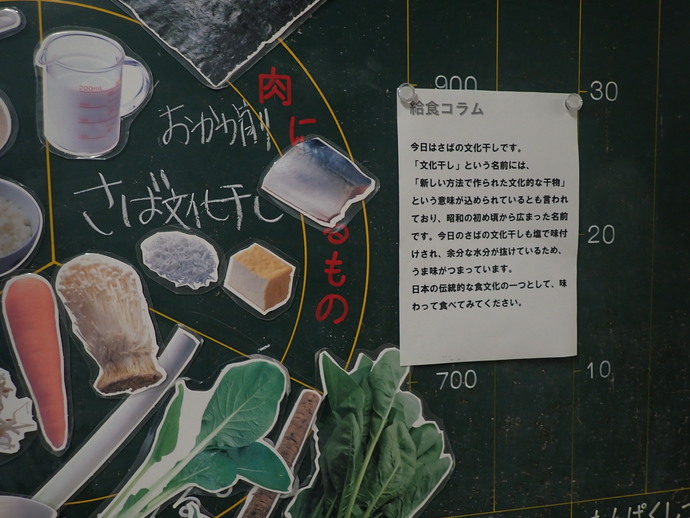 200mL
おかか削
肉に
るもの
さば文化干し
900
30
20
700
10
給食コラム
今日はさばの文化干しです。
「文化干し」という名前には、
「新しい方法で作られた文化的な干物」
という意味が込められているとも言われ
ており、昭和の初め頃から広まった名前
です。今日のさばの文化干しも塩で味付
けされ、余分な水分が抜けているため、
うま味がつまっています。
日本の伝統的な食文化の一つとして、味
わって食べてみてください。
たんぱくしつ